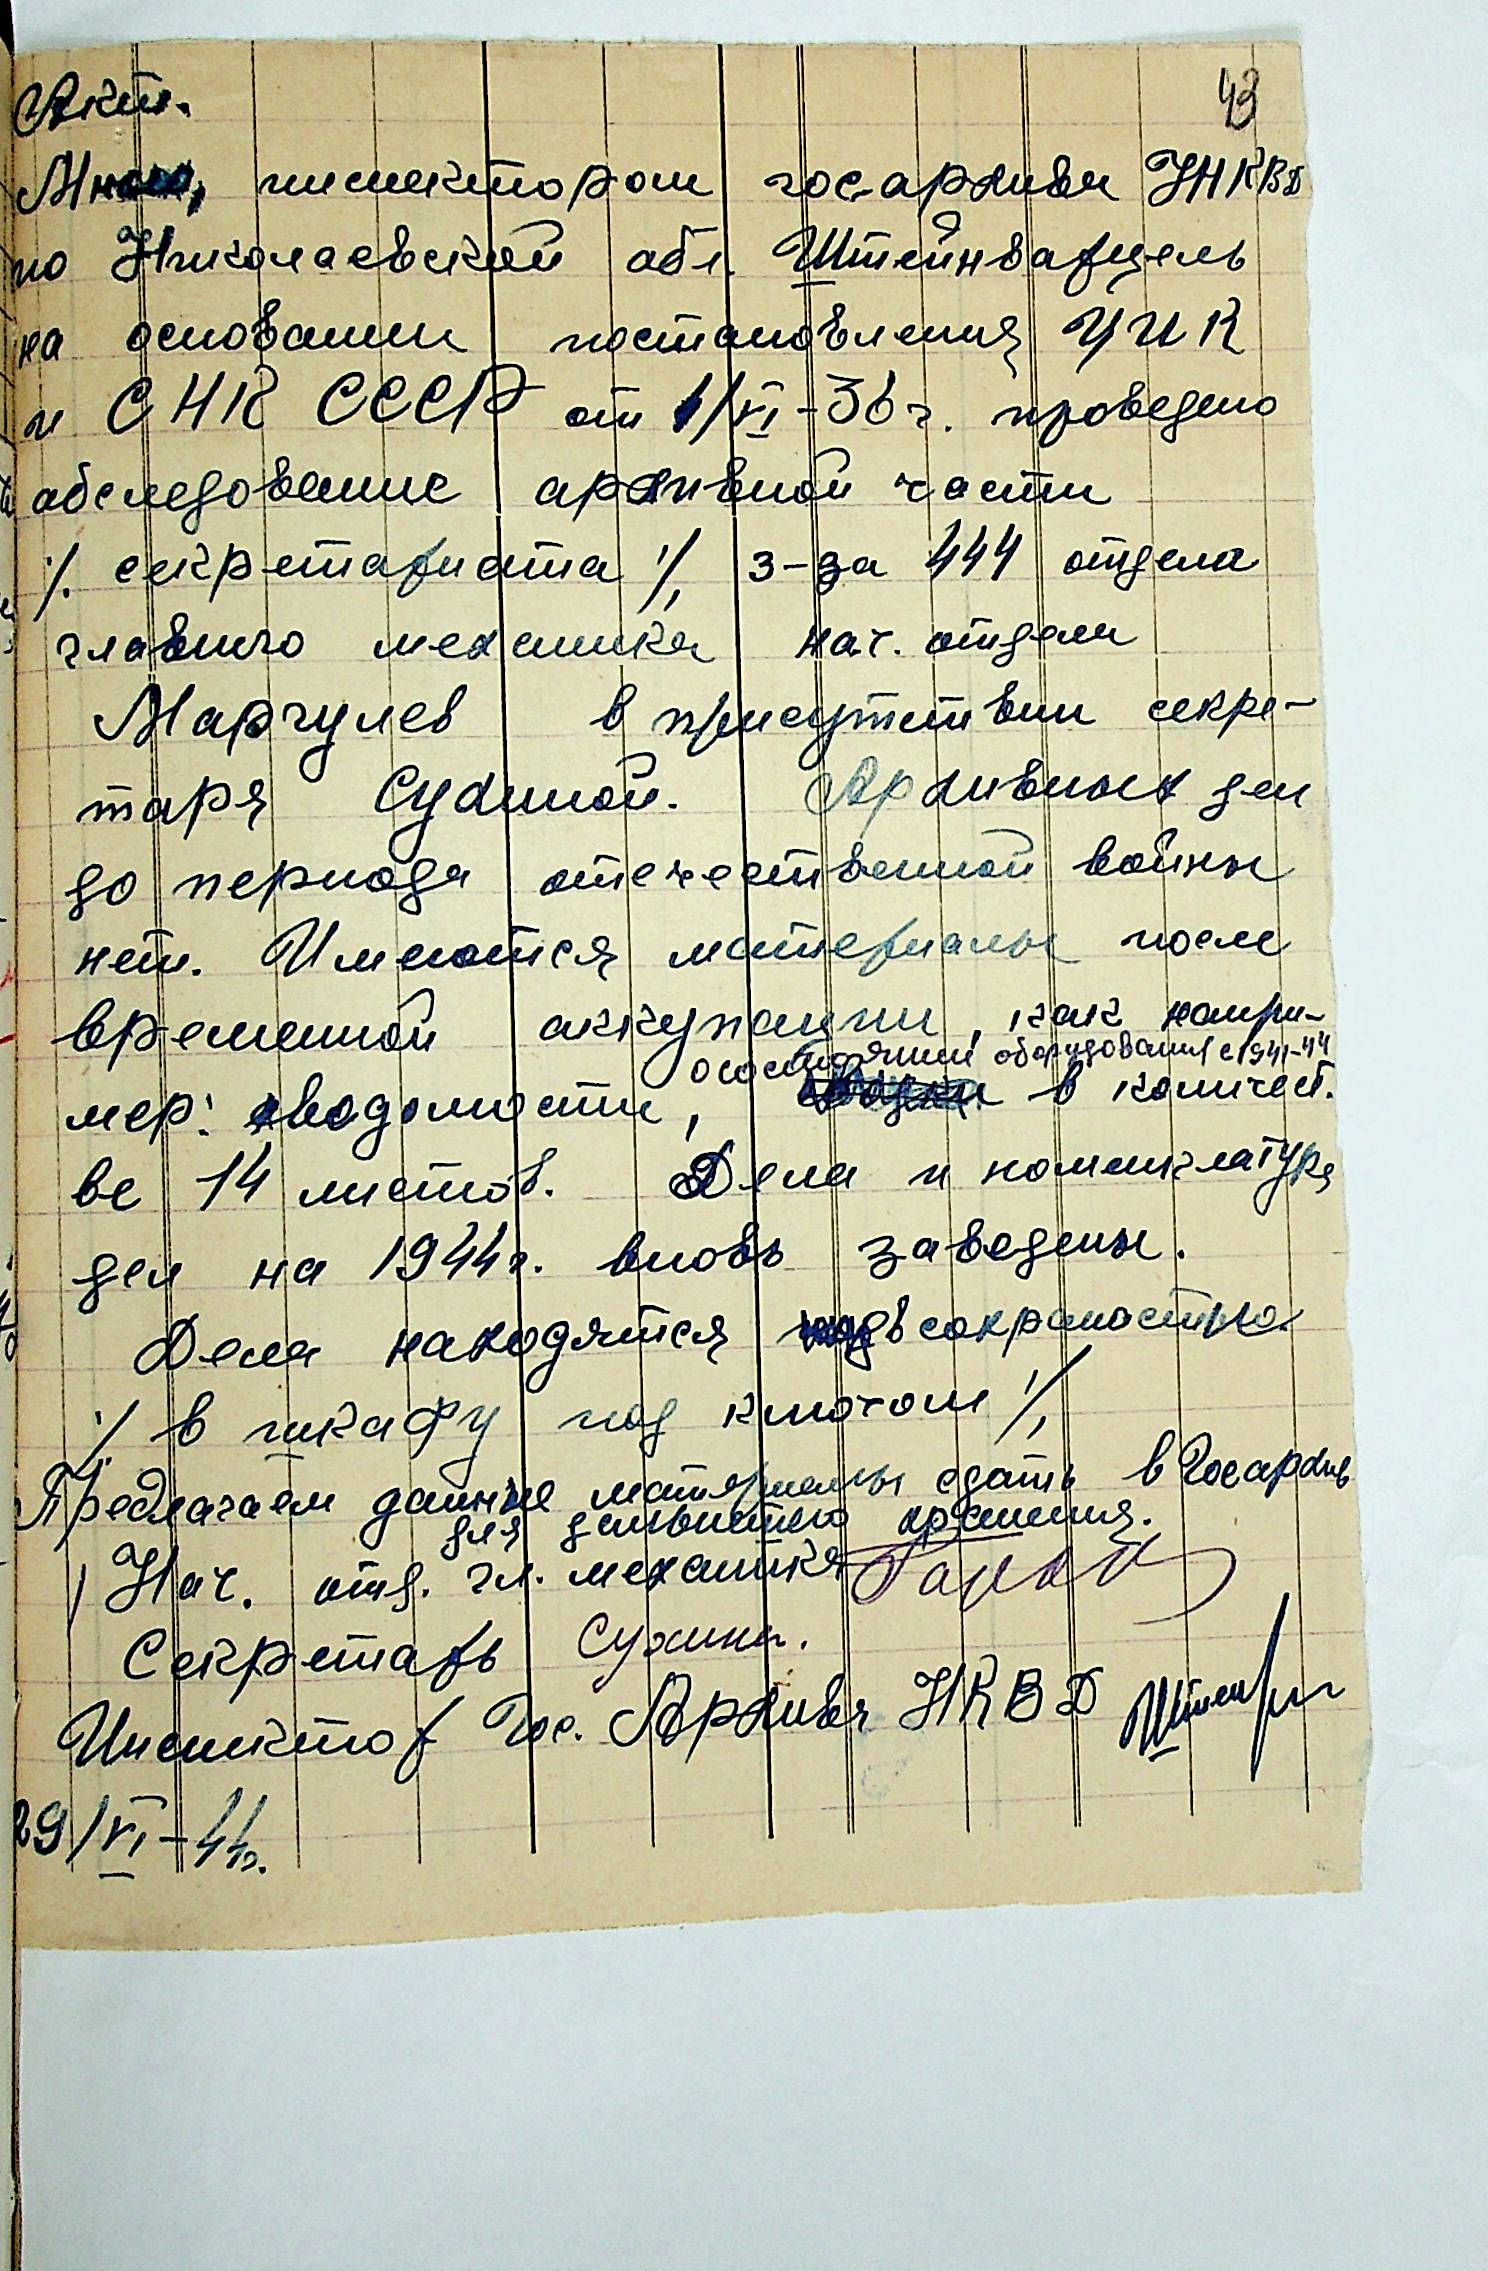 43
Акт.
Мною, инспектором госархива УНКВД
по Николаевской обл. Штейнварцель
на основании постановления ЦИК
и СНК СССР от 1/VI-36 г. проведено
обследование архивной части
/. секретариата ./, з-да 444 отдела
главного механика нач. отдела
Маргулев в присутствии секре-
таря Сухиной. Архивных дел
до периода отечественной войны
нет. Имеются материалы после
временной аккупации, как напри-
о состоянии оборудования с 1941-44
мер: сводомости, в количест.
ве 14 листов. Дела и номенклатура
дел на 1944 г. вновь заведены.
Дела находятся в сохранностью
./ в шкафу под ключом ./,
Предлагаем данные материалы сдать в Госархив
для дальнейшего хранения.
Нач. отд. гл. механика
Секретарь Сухина.
Инспектор Гос. Архива НКВД
29/VI-44г.